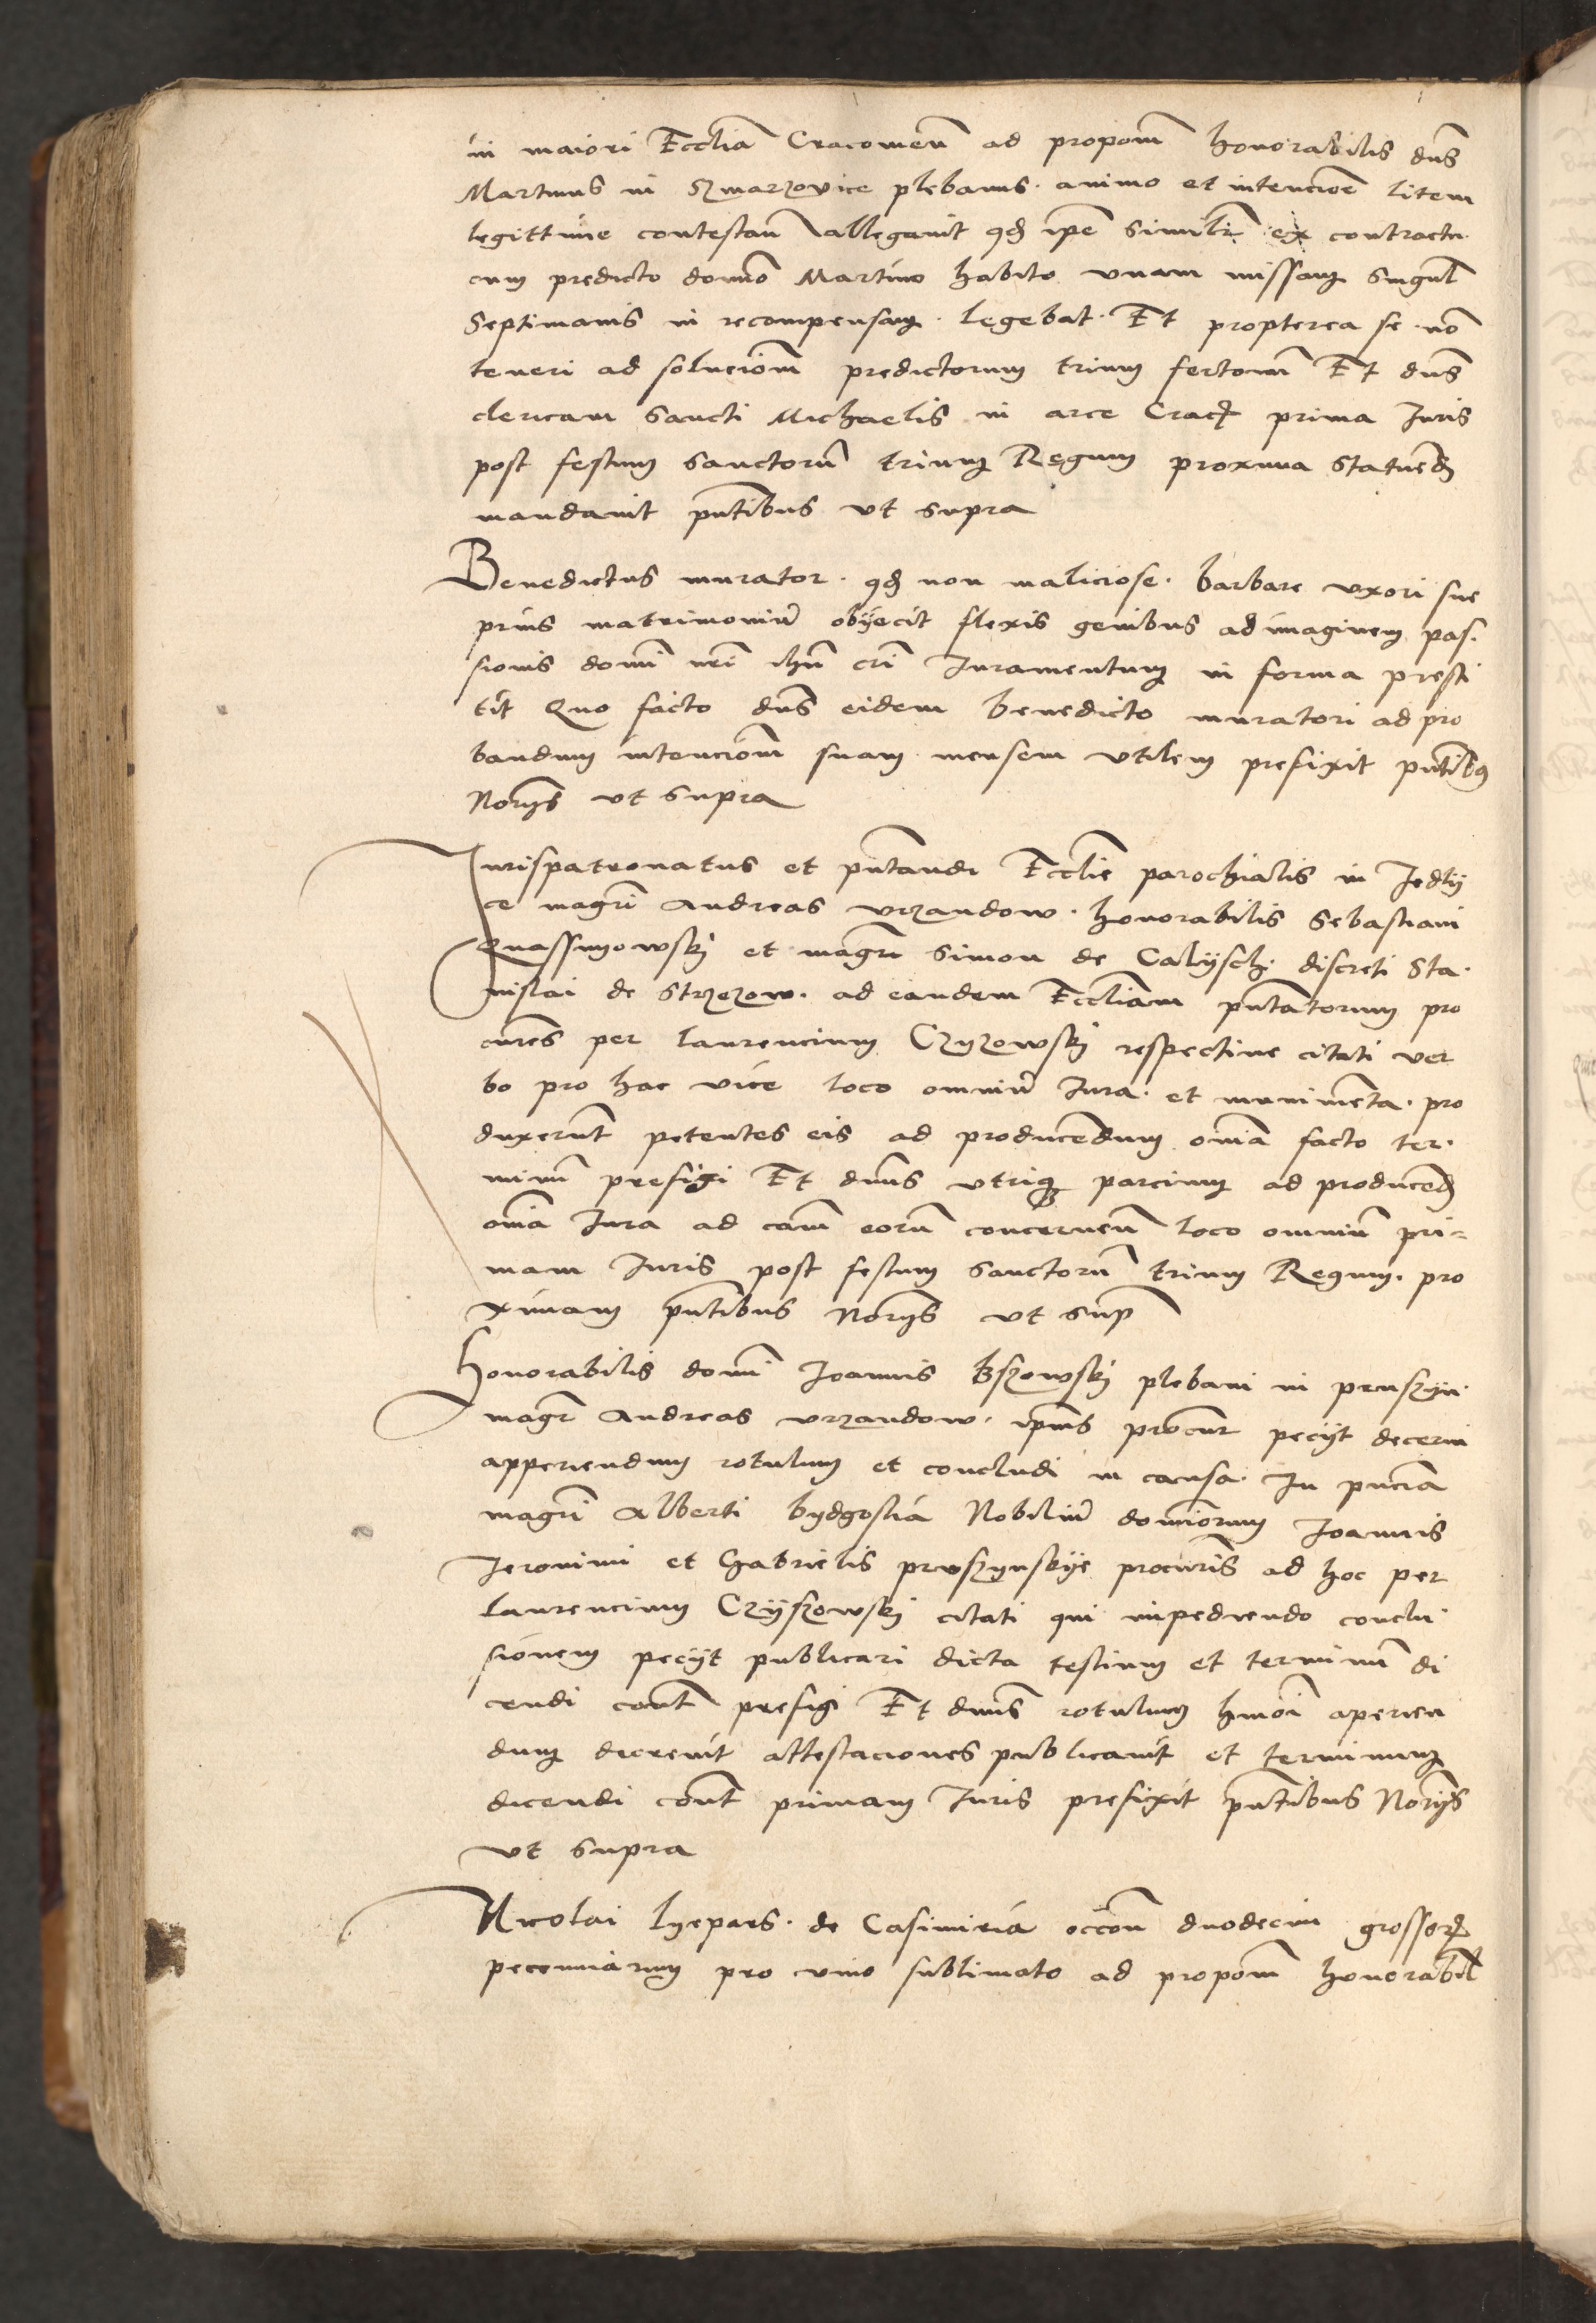 in maiori Ecclia Cracovien ad propom honorabilis dns
Martinus in Szmarzovice plebanus. animo et intencione litem
legittime contestan allegavit qd ipe similr ex contractu.
cum predicto domno Martino habito unam missam singul
Septimanis in recompensam. legebat. Et propterea se no
teneri ad solucionm predictorum trium fertonum Et dns
clericam Sancti Michaelis in arce Crac prima Iuris
post festum Sanctorum trium Regum proxima statuend
mandavit pntibus ut supra
Benedictus murator. qd non maliciose. barbare uxori sue
prius matrimonium obyecit flexis genibus ad imaginem pas.
sionis domi nri ihu cri Iuramentum in forma presti
tit Quo facto dns eidem benedicto muratori ad pro
bandum intencionm suam mensem utilem prefixit pntibus
Norys ut supra
Iurispatronatus et pntandi Ecclie parochialis in Iedly
ce magri Andreas Urzandow. honorabilis Sebastiani
Quassnyowsky et magri Simon de Calysch. discreti Sta.
nislai de Strzezow. ad eandem Eccliam pntatorum pro
cures per laurencium Czyzowsky respective citati ver
bo pro hac vice loco omnium Iura. et munimenta. pro
duxerunt petentes eis ad producendum omia facto ter.
minum prefigi Et dnus utrique parcium ad producend
omia Iura ad cam eorum concernen loco omnium pri-
mam Iuris post festum Sanctorum trium Regum. pro
ximam pntibus Norys ut sup
Honorabilis domi Ioannis Bszowsky plebani in pruszyn.
magr Andreas Urzandow. ipius procur pecyt decerni
apperiendum rotulum et concludi in causa. In pncia
magri Alberti bydgostia Nobilium dominorum Ioannis
Ieronimi et Gabrielis pruszynskye procuris ad hoc per
laurencium Czyszowsky citati qui impediendo conclu.
sionem pecyt publicari dicta testium et terminum di
cendi cont prefigi Et dnus rotulum hmoi aperien
dum decrevit attestaciones publicavit et terminum
dicendi cont primam Iuris prefixit pntibus Norys
ut supra
Nicolai lyepars. de Casimiria occon duodecim grossor
pecuniarum pro vino sublimato ad propom honorabil